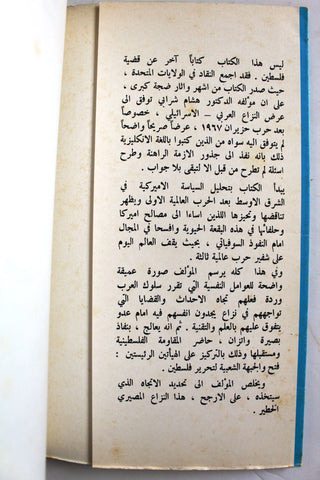 ليس هذا الكتاب كتاباً آخر عن قضية
فلسطين . فقد اجمع النقاد في الولايات المتحدة ،
حيث صدر الكتاب من اشهر وآثار ضجة كبرى ،
على ان مؤلفه الدكتور هشام شرابي توفق الى
عرض النزاع العربي - الاسرائيلي ، خصوصاً
بعد حرب حزيران ١٩٦٧ ، عرضاً صريحاً واضحاً
لم يتوفق اليه سواه من الذين كتبوا باللغة الانكليزية
ذلك بانه نفذ الى جذور الازمة الراهنة وطرح
اسئلة لم تطرح من قبل الا لتبقى بلا جواب .
يبدأ الكتاب بتحليل السياسة الاميركية في
الشرق الاوسط بعد الحرب العالمية الاولى ويظهر
تناقضها وتحيزها اللذين اساءا الى مصالح اميركا
وحلفائها في هذه البقعة الحيوية وافسحا في المجال
امام النفوذ السوفياتي ، بحيث يقف العالم اليوم
على شفير حرب عالمية ثالثة .
وفي هذا كله يرسم المؤلف صورة عميقة
واضحة للعوامل النفسية التي تقرر سلوك العرب
وردة فعلهم تجاه الاحداث والقضايا التي
تواجههم في نزاع يجدون انفسهم فيه امام عدو
يتفوق عليهم بالعلم والتقنية . ثم انه يعالج ، بنفاذ
بصيرة واتزان ، حاضر المقاومة الفلسطينية
ومستقبلها وذلك بالتركيز على الهيأتين الرئيستين :
فتح والجبهة الشعبية لتحرير فلسطين .
ويخلص المؤلف الى تحديد الاتجاه الذي
سيتخذه ، على الارجح ، هذا النزاع المصيري
الخطير .